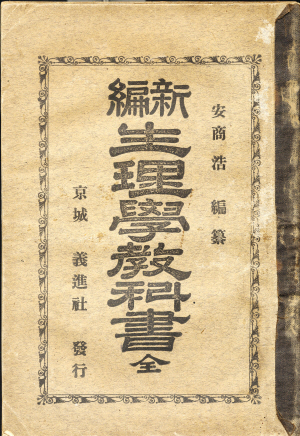 安商浩 編纂
新編
生理學教科書 全
京城 義進社 發行